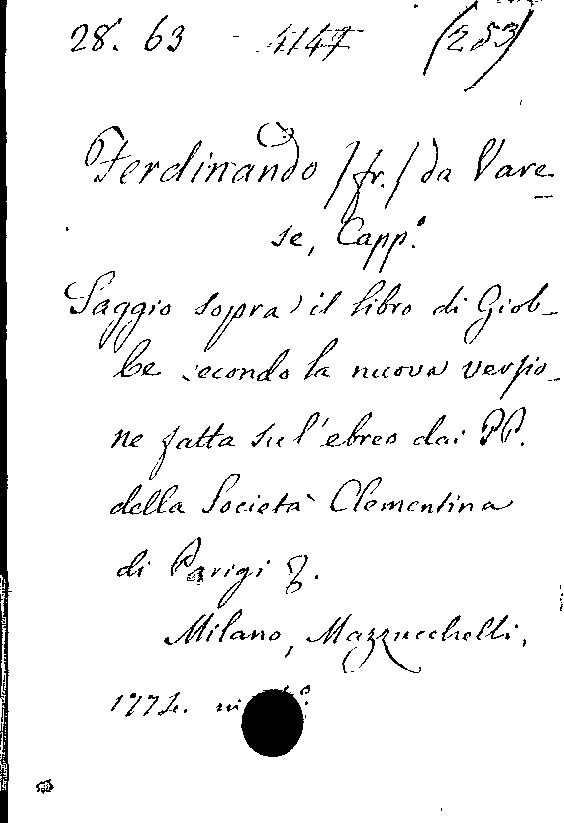 28. 63 - 4147 (253)
Ferdinando /fr./ da Vare-
se, Capp.º
Saggio sopra il libro di Giob-
be secondo la nuova versio-
ne fatta sul' ebreo dai PP.
della Società Clementina
di Parigi
Milano, Mazzucchelli,
in